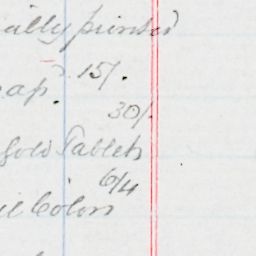 ally printed
ap. 15/.
30/.
Gold Tablets
6/4
il Colors